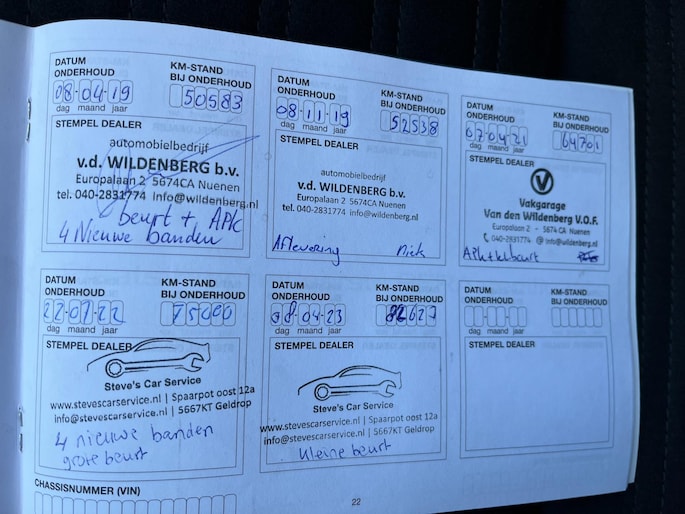 DATUM ONDERHOUD
KM-STAND BIJ ONDERHOUD
08-04-19
50583
dag maand jaar
STEMPEL DEALER
automobielbedrijf
v.d. WILDENBERG b.v.
Europalaan 2 5674CA Nuenen
tel. 040-2831774 info@wildenberg.nl
beurt + APK
4 Nieuwe banden
DATUM ONDERHOUD
KM-STAND BIJ ONDERHOUD
08-11-19
52538
dag maand jaar
STEMPEL DEALER
automobielbedrijf
v.d. WILDENBERG b.v.
Europalaan 2 5674CA Nuenen
tel. 040-2831774 info@wildenberg.nl
Aflevering Niels
DATUM ONDERHOUD
KM-STAND BIJ ONDERHOUD
07-04-21
64701
dag maand jaar
STEMPEL DEALER
Vakgarage
Van den Wildenberg V.O.F.
Europalaan 2 - 5674 CA Nuenen
040-2831774 @ info@wildenberg.nl
DATUM ONDERHOUD
KM-STAND BIJ ONDERHOUD
22-07-22
75000
dag maand jaar
STEMPEL DEALER
Steve's Car Service
www.stevescarservice.nl | Spaarpot oost 12a
info@stevescarservice.nl | 5667KT Geldrop
4 nieuwe banden
grote beurt
DATUM ONDERHOUD
KM-STAND BIJ ONDERHOUD
08-04-23
82627
dag maand jaar
STEMPEL DEALER
Steve's Car Service
www.stevescarservice.nl | Spaarpot oost 12a
info@stevescarservice.nl | 5667KT Geldrop
kleine beurt
DATUM ONDERHOUD
KM-STAND BIJ ONDERHOUD
dag maand jaar
STEMPEL DEALER
CHASSISNUMMER (VIN)
22